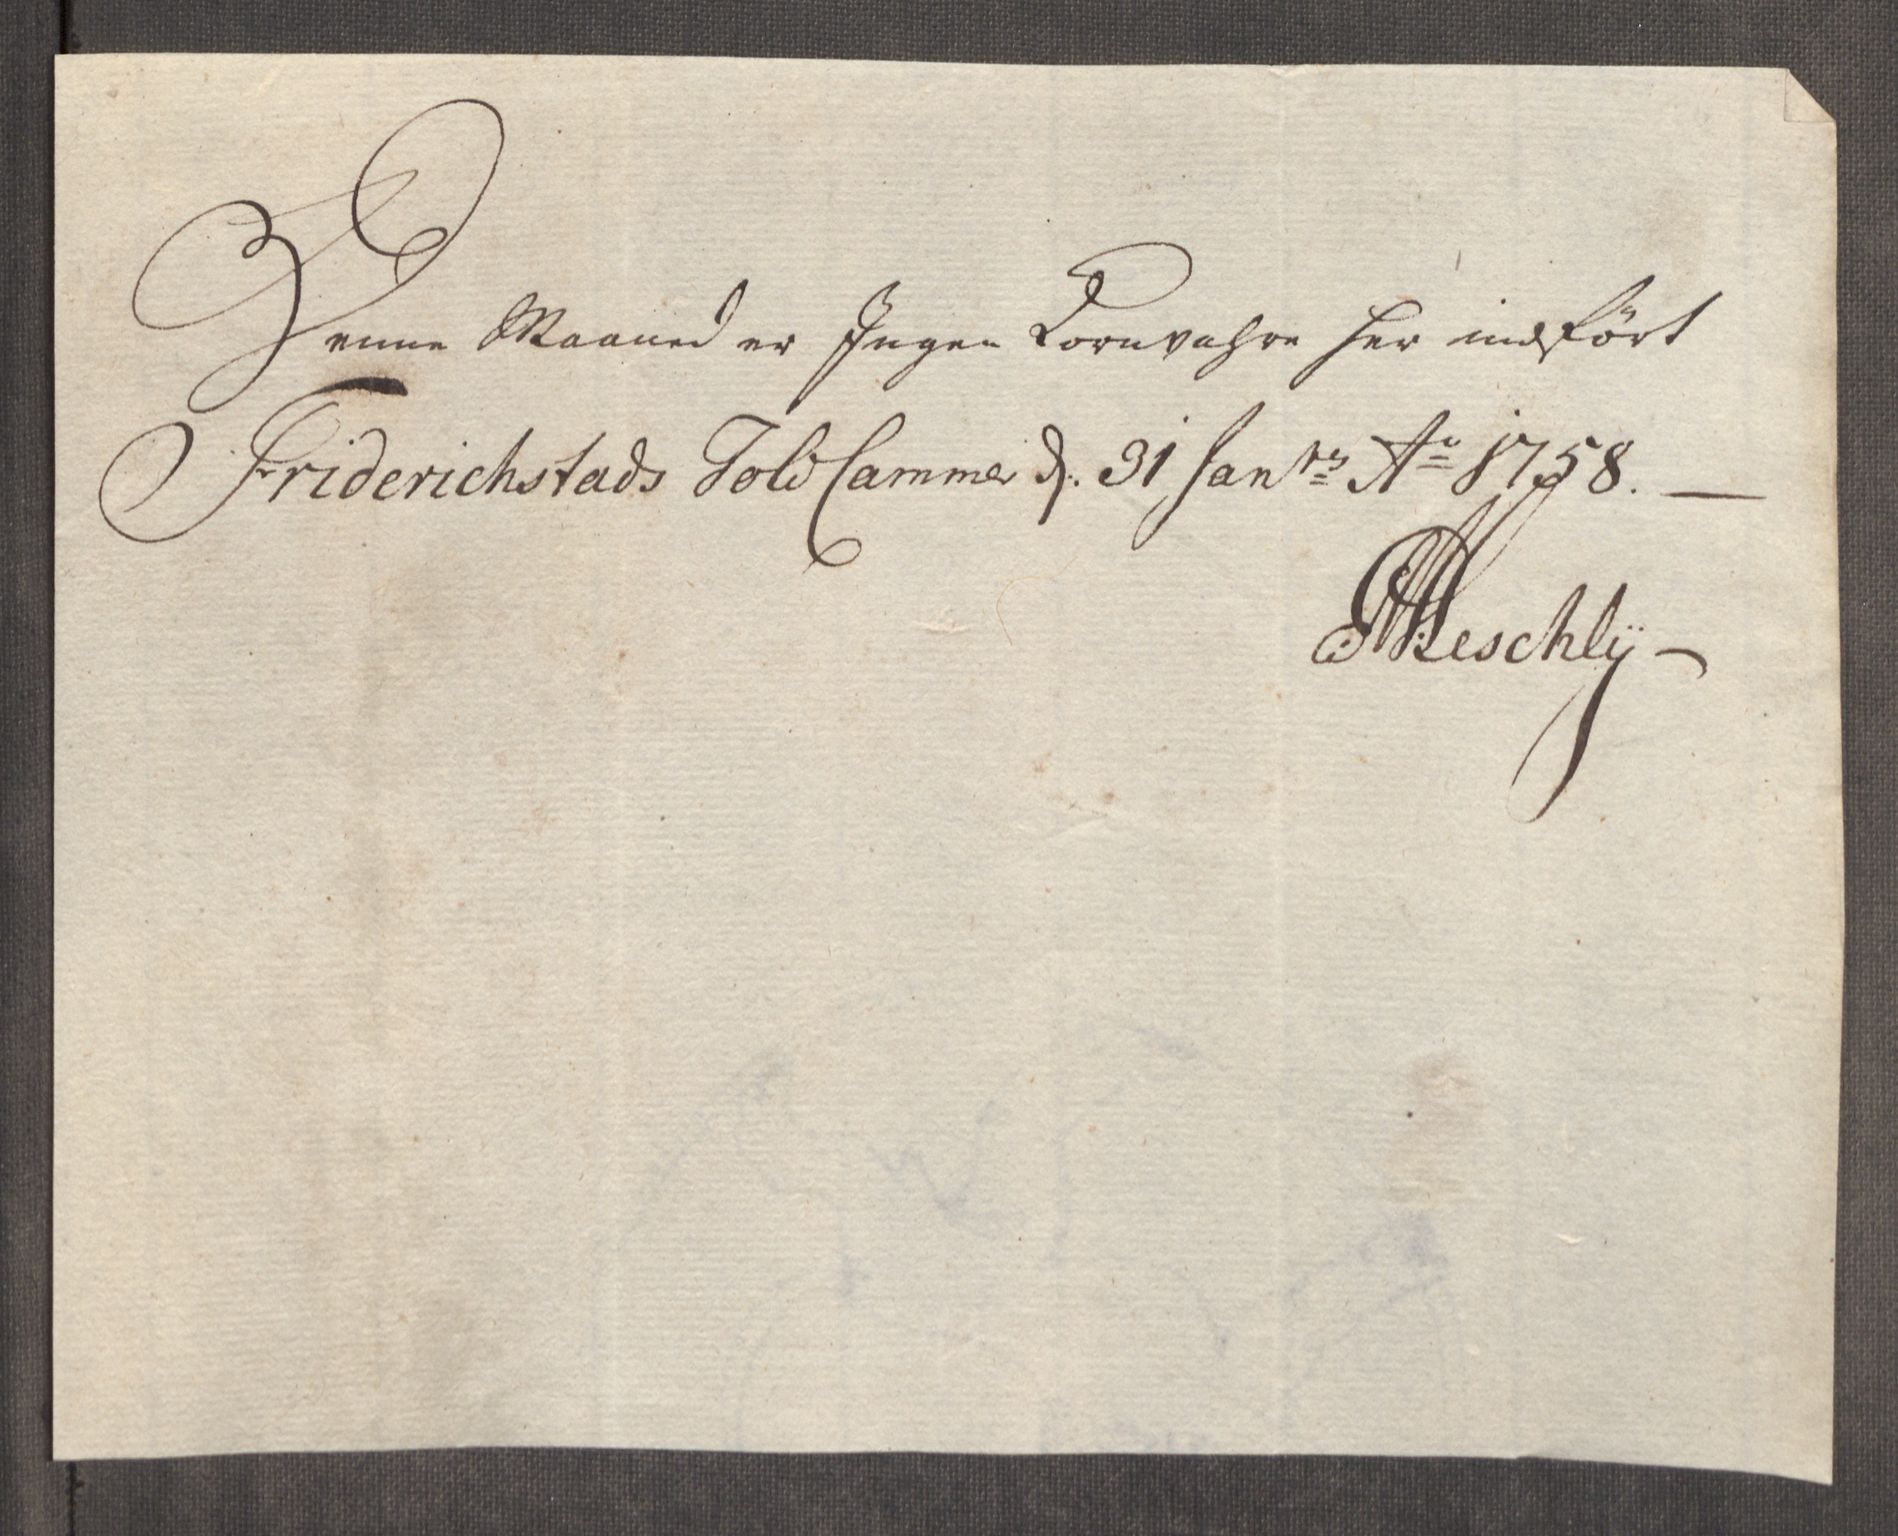 Denne Maaned er Ingen Kornvahre her indført
Friderichstads Told Cammer d. 31 Jan ry Ao 1758. —